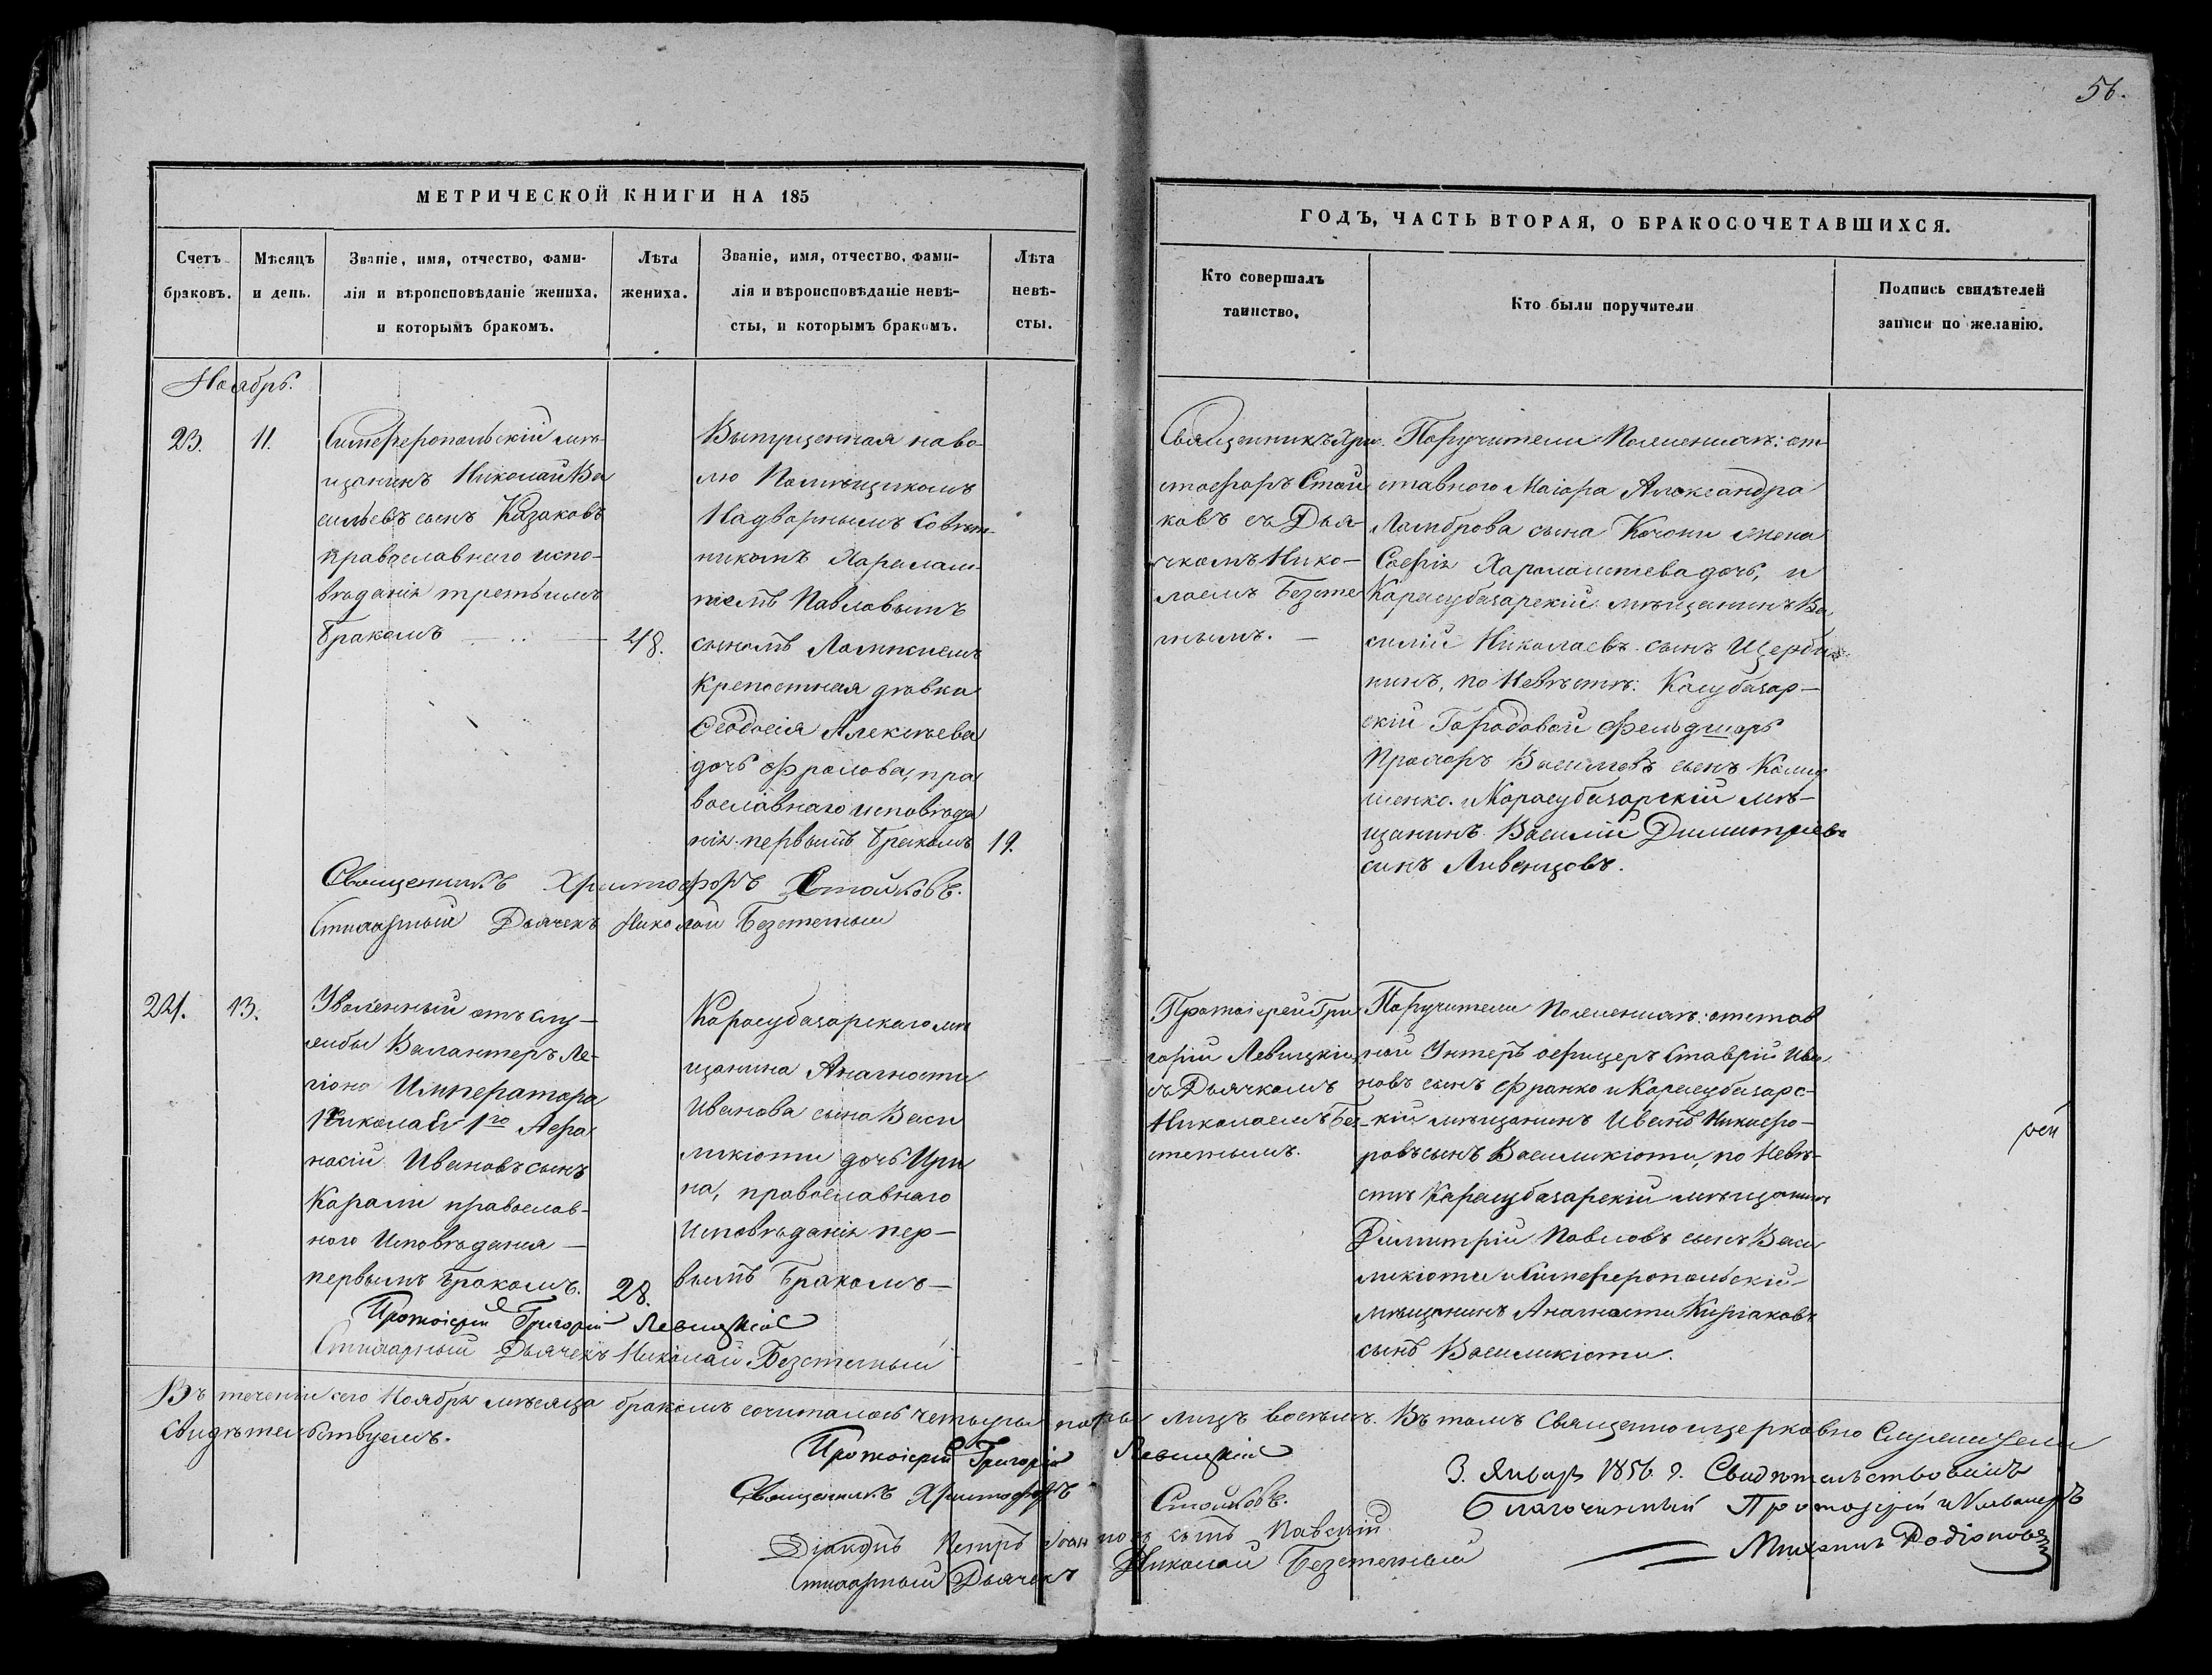 56.
МЕТРИЧЕСКОЙ КНИГИ НА 185
ГОДЪ, ЧАСТЬ ВТОРАЯ, О БРАКОСОЧЕТАВШИХСЯ.
Счетъ
браковъ.
Мѣсяцъ
и день.
Званіе, имя, отчество, фами-
лія и вѣроисповѣданіе жениха,
и которымъ бракомъ.
Лѣта
жениха.
Званіе, имя, отчество, фами-
лія и вѣроисповѣданіе невѣ-
сты, и которымъ бракомъ.
Лѣта
невѣ-
сты.
Кто совершалъ
таинство.
Кто были поручители
Подпись свидѣтелей
записи по желанію.
Ноябрь.
23.
11.
Симферопольскій мѣ-
щанинъ Николай Ва
сильевъ сынъ Казаковъ
православнаго испо-
вѣданія третьимъ
бракомъ
48.
Выпущенная на во-
лю Помѣщикомъ
Надворнымъ Совѣт-
никомъ Харалам-
піемъ Павловымъ
сыномъ
Крепостная дѣвка
Ѳеодосія Алексѣева
дочь Фролова, пра
вославнаго исповѣда
нія первымъ бракомъ
19.
Священникъ Хри
стофоръ Стой
ковъ съ Дья-
чкомъ Нико-
лаемъ Безсте
тнымъ.
Поручители По женихѣ: от-
ставного Маіора Александра
Ламброва сына Качони жена
Софія Харалампіева дочь, и
Карасубазарскій мѣщанинъ Ва
силій Николаевъ сынъ Щерби
нинъ, по Невѣстѣ: Касубазар-
скій Городовой Фельдшеръ
Прохоръ Васильевъ сынъ
и Карасубазарскій мѣ-
щанинъ Василій Димитріевъ
сынъ Ливенцовъ.
Священникъ Христофоръ Стойковъ.
Стихарный Дьячекъ Николай Безстетный
24.
13.
Уволенный отъ слу-
жбы Валантеръ Ле-
гіона Императора
Николая 1го Афа
насій Ивановъ сынъ
Карали православ-
наго Исповѣдания
первымъ бракомъ.
28.
Карасубазарскаго мѣ
щанина Анагности
Иванова сына Васи
ликіоти дочь Ири
на, православнаго
Исповѣданія пер-
вымъ бракомъ
Протоіерей Гри
горій Левицкій
съ Дьячкомъ
Николаемъ Без-
стетнымъ.
Поручители По женихѣ: отстав
ной Унтеръ офицеръ Ставрій Ива
новъ сынъ Франко и Карасубазарс-
кій мѣщанинъ Иванъ Никифо-
ровъ сынъ Василикіоти, по Невѣ-
стѣ Карасубазарскій мѣщанинъ
Димитрій Павловъ сынъ Васи
ликіоти и Симферопольскій
мѣщанинъ Анагности Киріаковъ
сынъ Василикіоти.
Протоіерей Григорій Левицкій
Стихарный Дьячекъ Николай Безстетный
Въ теченіи сего Ноября мѣсяца бракомъ сочиталось четыре пары лицъ восемь. Въ томъ Священноцерковно Служители
Свидѣтельствуемъ.
Протоіерей Григорій Левицкій
Священникъ Христофоръ Стойковъ.
Діаконъ Петръ сынъ Павскій
Стихарный Дьячекъ Николай Безстетный
3. Января 1856. г. Свидѣтельствовалъ
Благочинный Протоіерей и Кавалеръ
Михаилъ Родіоновъ